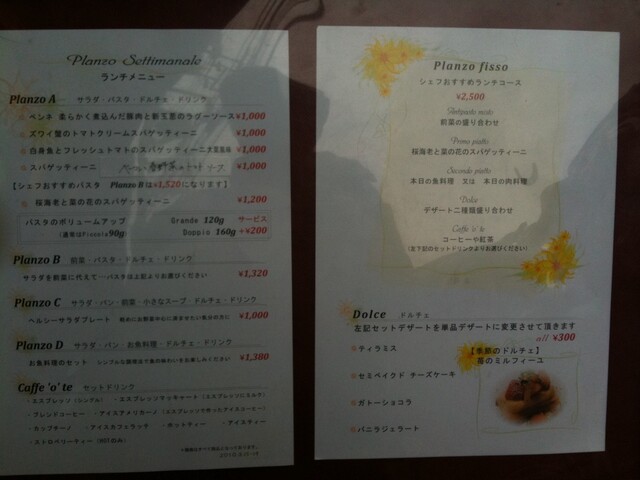 Planzo Settimanale
ランチメニュー
Planzo A サラダ・パスタ・ドルチェ・ドリンク
ペンネ 柔らかく煮込んだ豚肉と のラグーソース ¥1,000
ズワイ蟹のトマトクリームスパゲッティーニ ¥1,000
白身魚とフレッシュトマトのスパゲッティーニ ¥1,000
スパゲッティーニ ¥1,000
【シェフおすすめパスタ Planzo Bは¥1,520になります】
桜海老と菜の花のスパゲッティーニ ¥1,200
パスタのボリュームアップ Grande 120g サービス
(通常はPiccola90g) Doppio 160g +¥200
Planzo B 前菜・パスタ・ドルチェ・ドリンク
サラダを前菜に代えて…パスタは上記よりお選びください ¥1,320
Planzo C サラダ・パン・前菜・小さなスープ・ドルチェ・ドリンク
ヘルシーサラダプレート ¥1,000
Planzo D サラダ・パン・お魚料理・ドルチェ・ドリンク
お魚料理のセット ¥1,380
Caffe 'o' te セットドリンク
・エスプレッソ(シングル) ・エスプレッソマッキャート(エスプレッソにミルク)
・ブレンドコーヒー ・アイスアメリカーノ(エスプレッソで作ったアイスコーヒー)
・カップチーノ ・アイスカフェラッテ ・ホットティー ・アイスティー
・ストロベリーティー(HOTのみ)
Planzo fisso
シェフおすすめランチコース
¥2,500
Antipasto misto
前菜の盛り合わせ
Primo piatto
桜海老と菜の花のスパゲッティーニ
Secondo piatto
本日の魚料理 又は 本日の肉料理
Dolce
デザート二種類盛り合わせ
Caffe 'o' te
コーヒーや紅茶
(左下記のセットドリンクよりお選びください)
Dolce ドルチェ
左記セットデザートを単品デザートに変更させて頂きます
all ¥300
ティラミス
【季節のドルチェ】
苺のミルフィーユ
セミベイクド チーズケーキ
ガトーショコラ
バニラジェラート